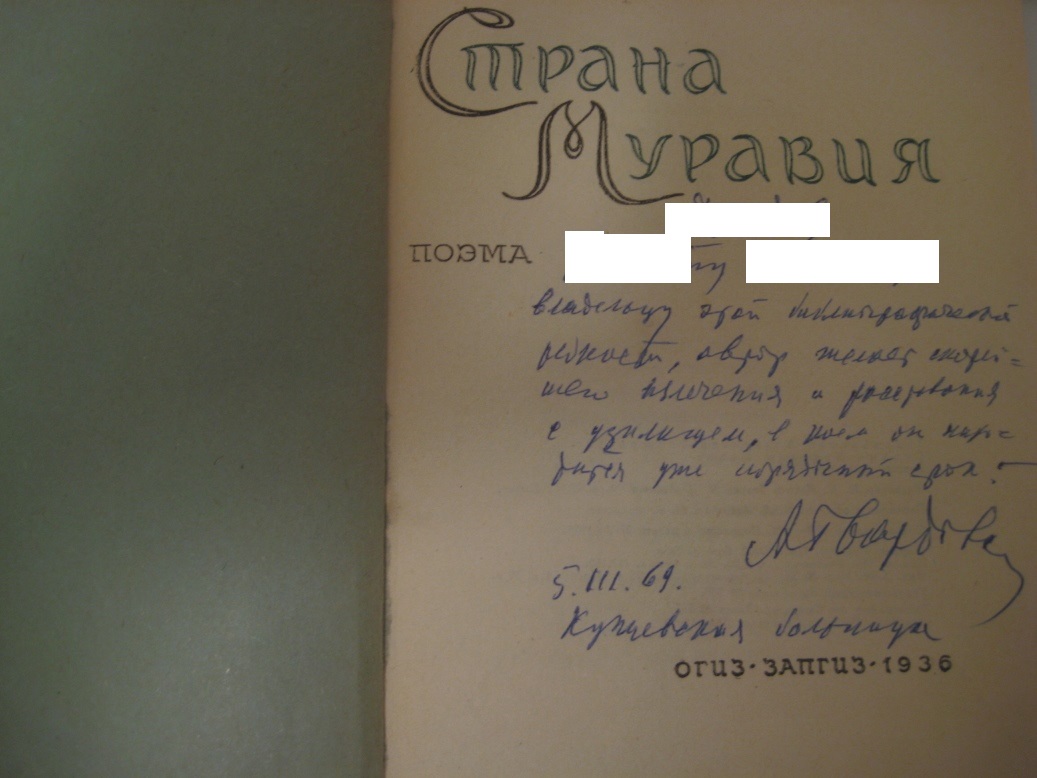 Страна
Муравия
ПОЭМА
владельцу этой библиографической
редкости, автор желает скорей-
шего излечения и расставания
с узилищем, в коем он нахо-
дится уже порядочный срок.
А Твардовс
5.III.69.
Кунцевская больница
ОГИЗ·ЗАПГИЗ·1936